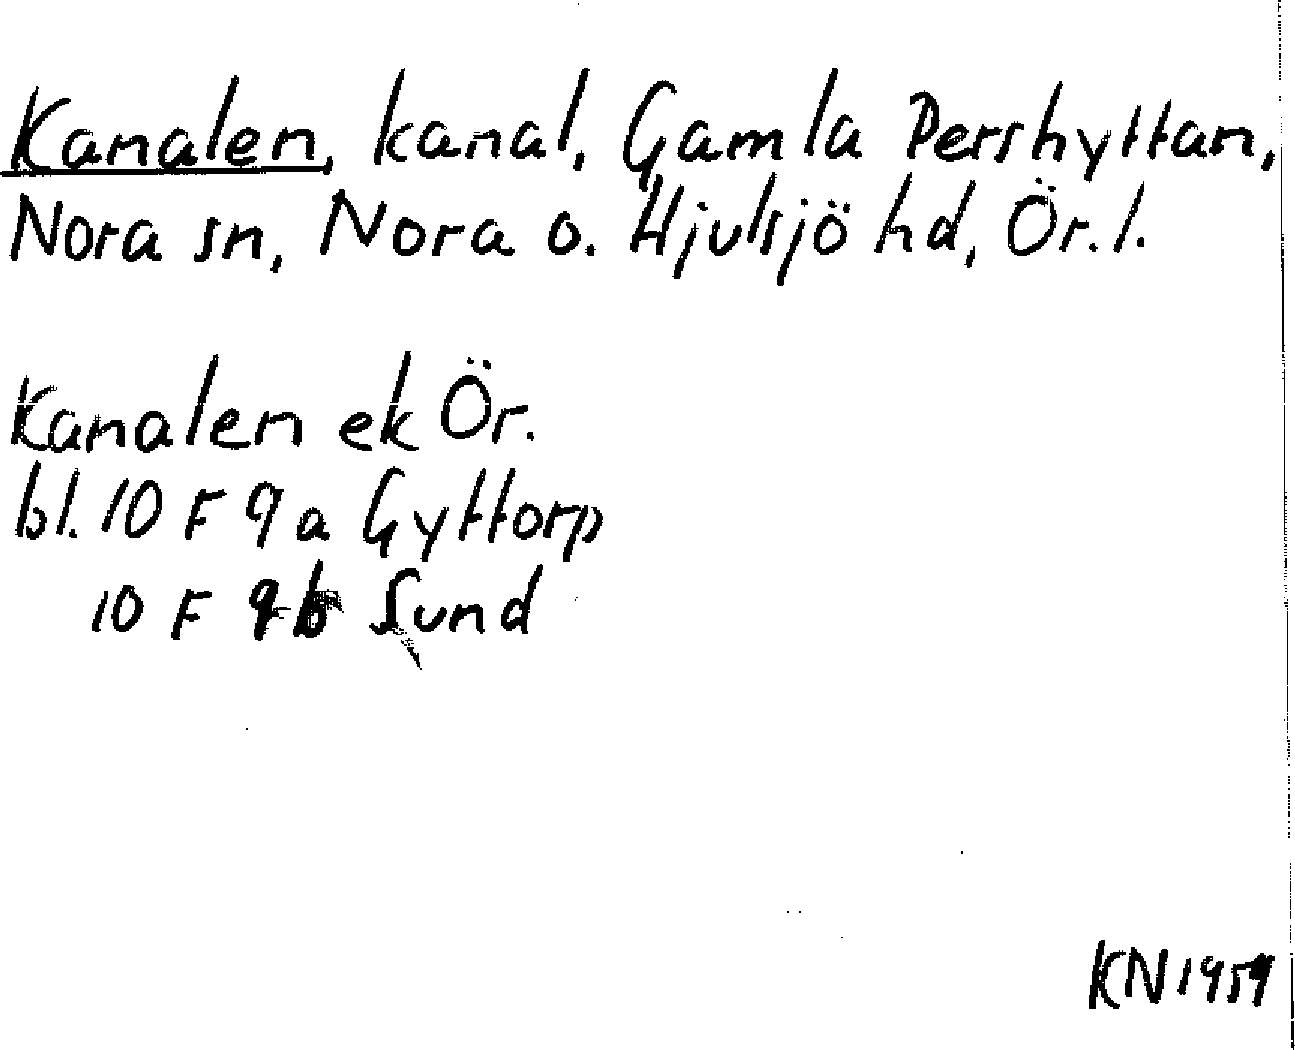 Kanalen, kanal, Gamla Pershyttan,
Nora sn, Nora o. Hjulsjö hd, Ör. l.
Kanalen ek Ör.
bl. 10 F 9 a Gyttorp
10 F 9 b Sund
KN 1959